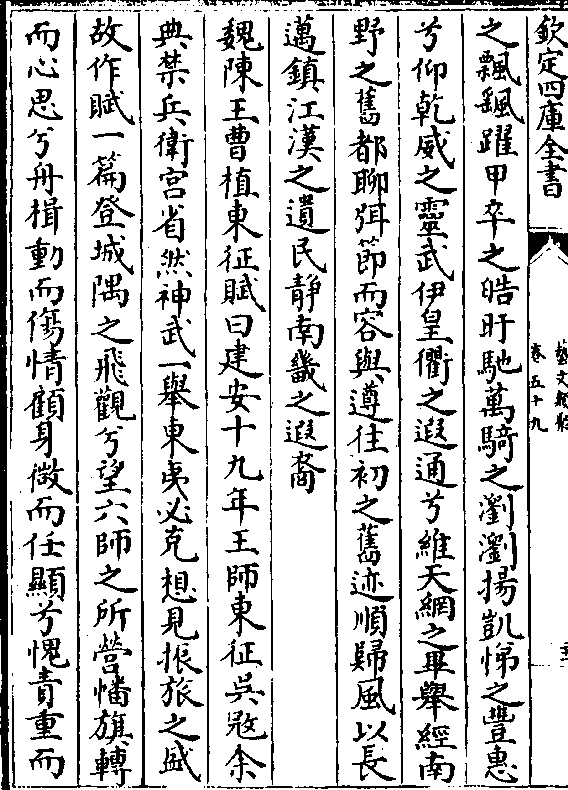 欽定四庫全書
藝文類聚
卷五十九
之飄颻躍甲卒之皓旰馳萬騎之瀏瀏揚凱悌之豐惠
兮仰乾威之靈武伊皇衢之遐通兮維天網之畢舉經南
野之舊都聊弭節而容與遵往初之舊迹順歸風以長
邁鎮江漢之遺民靜南畿之遐裔
魏陳王曹植東征賦曰建安十九年王師東征吳㓂余
典禁兵衛宫省然神武一舉東夷必克想見振旅之盛
故作賦一篇登城隅之飛觀兮望六師之所營幡旗轉
而心思兮舟楫動而傷情顧身微而任顯兮愧責重而